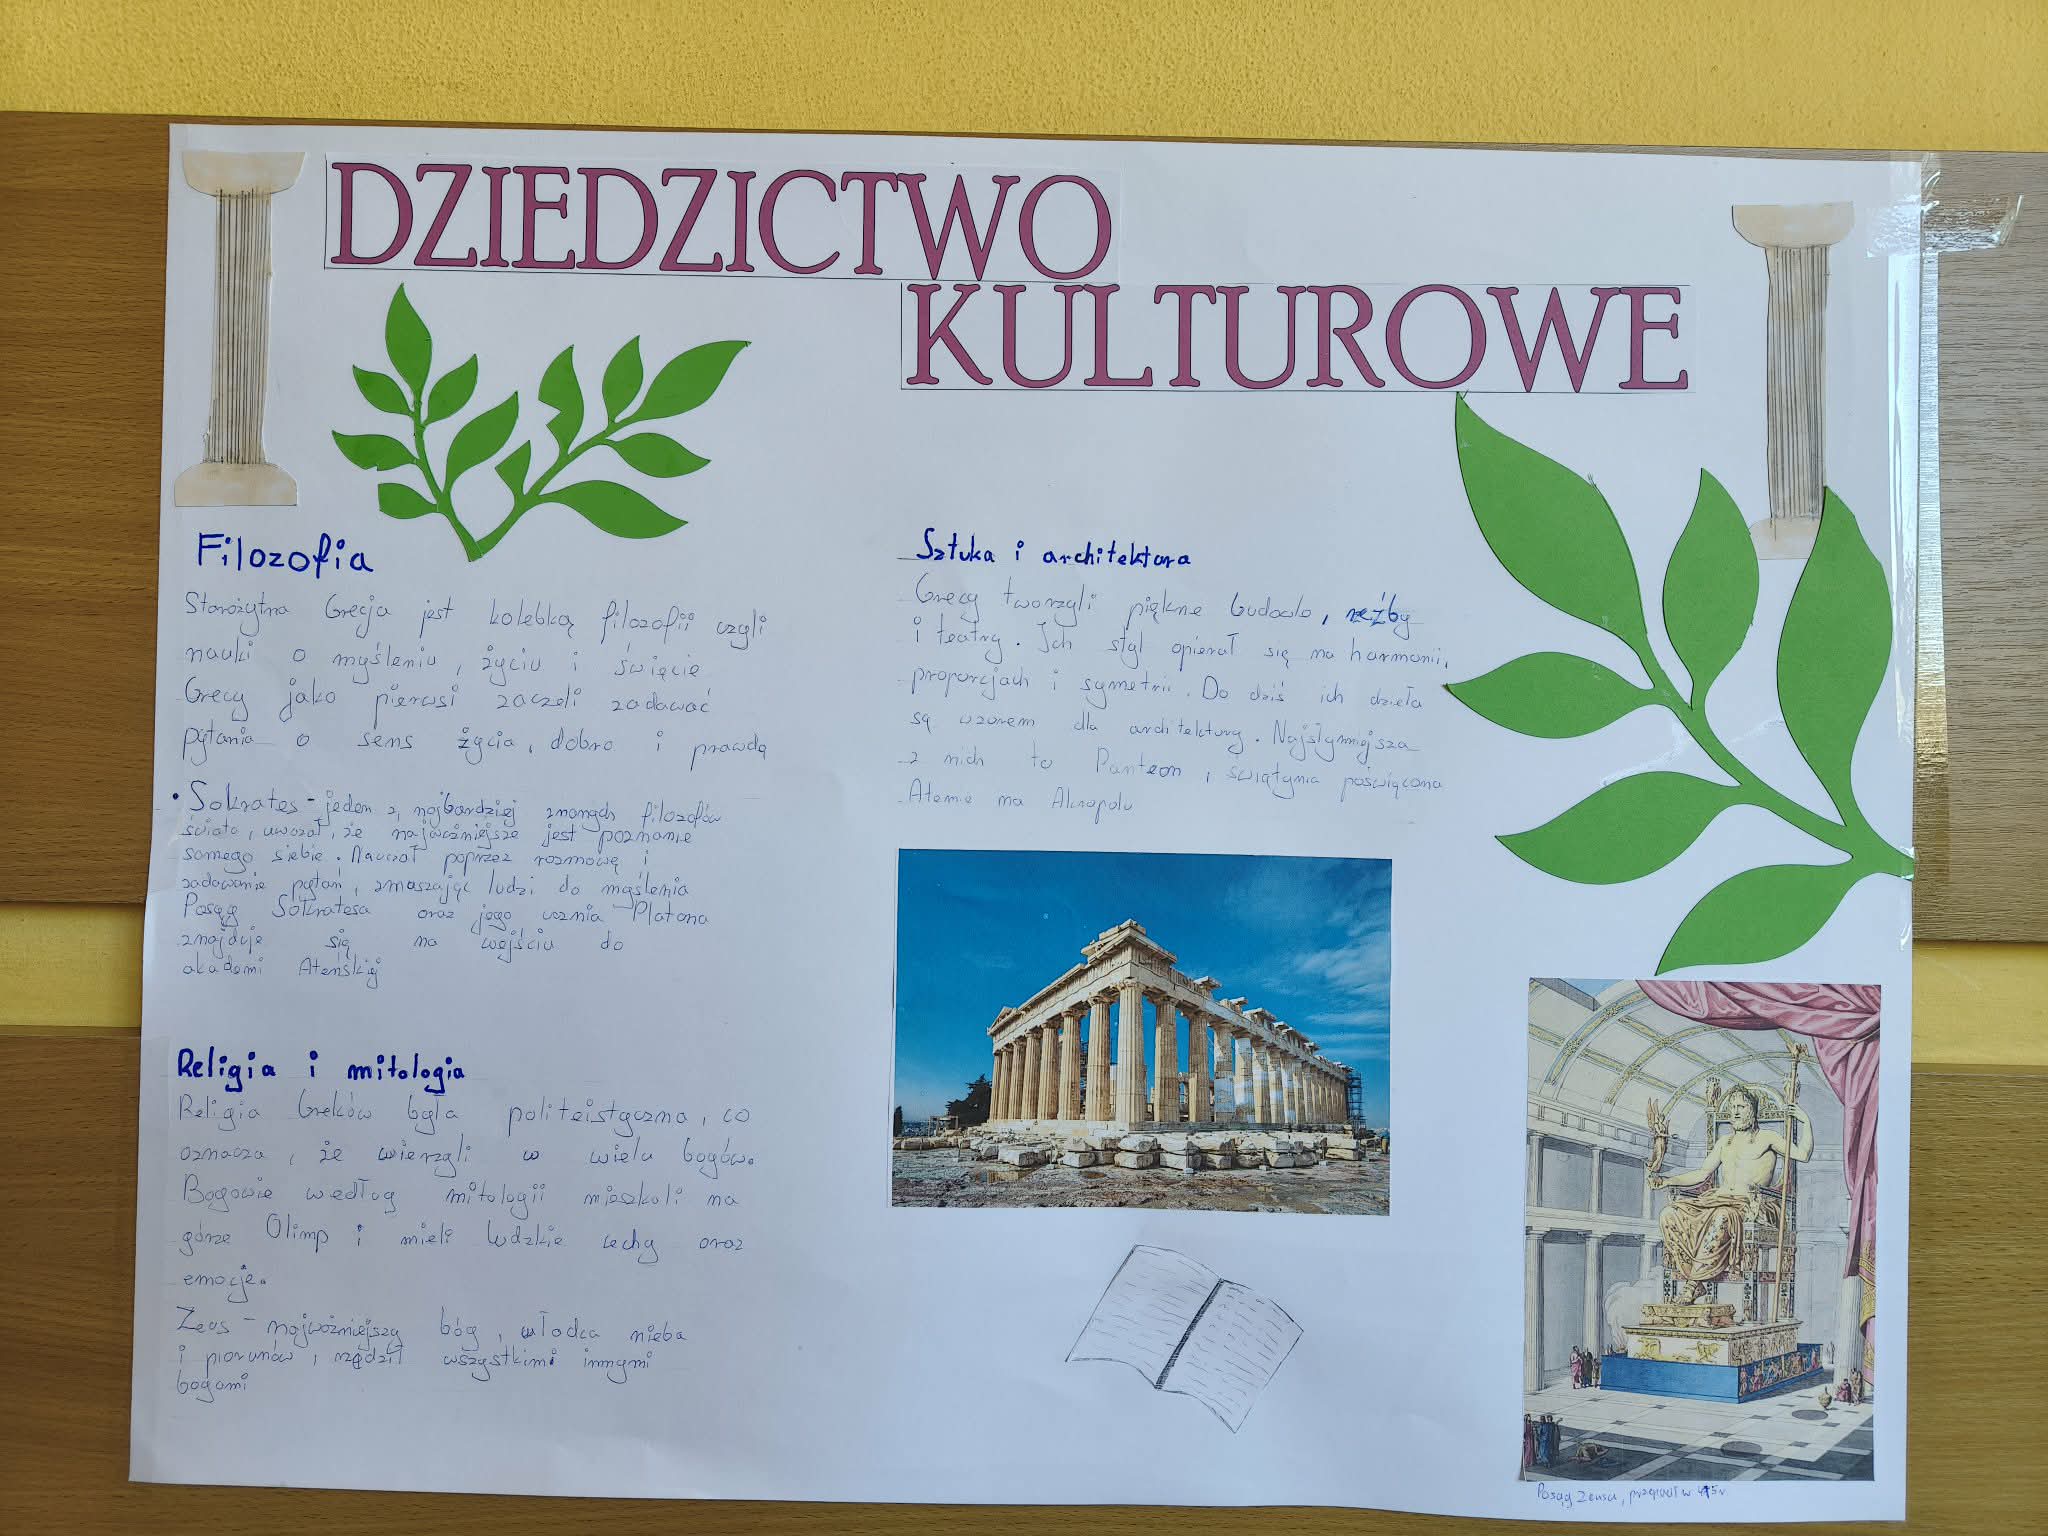 DZIEDZICTWO
KULTUROWE
Filozofia
Starożytna Grecja jest kolebką filozofii czyli
nauki o myśleniu, życiu i święcie
Grecy jako pierwsi zaczeli zadawać
pytania o sens życia, dobro i prawdą
• Sokrates - jeden z najbardziej znanych filozofów
świata, uważał, że najważniejsze jest poznanie
samego siebie. Nauczał poprzez rozmowę i
zadawanie pytań, zmuszając ludzi do myślenia
Posąg Sokratesa oraz jego ucznia Platona
znajduje się na wejściu do
akademi Ateńskiej
Religia i mitologia
Religia Greków była politeistyczna, co
oznacza, że wierzyli w wielu bogów.
Bogowie według mitologii mieszkali na
górze Olimp i mieli ludzkie cechy oraz
emocje.
Zeus - najważniejszy bóg, władca nieba
i piorunów, rządził wszystkimi innymi
bogami
Sztuka i architektura
Grecy tworzyli piękne budowle, rzeźby
i teatry. Ich styl opierał się na harmonii,
proporcjach i symetrii. Do dziś ich dzieła
są wzorem dla architektury. Najsłynniejsza
z nich to Panteon, świątynia poświęcona
Atenie na Akropolu
Posąg Zeusa, przepadł w 475r